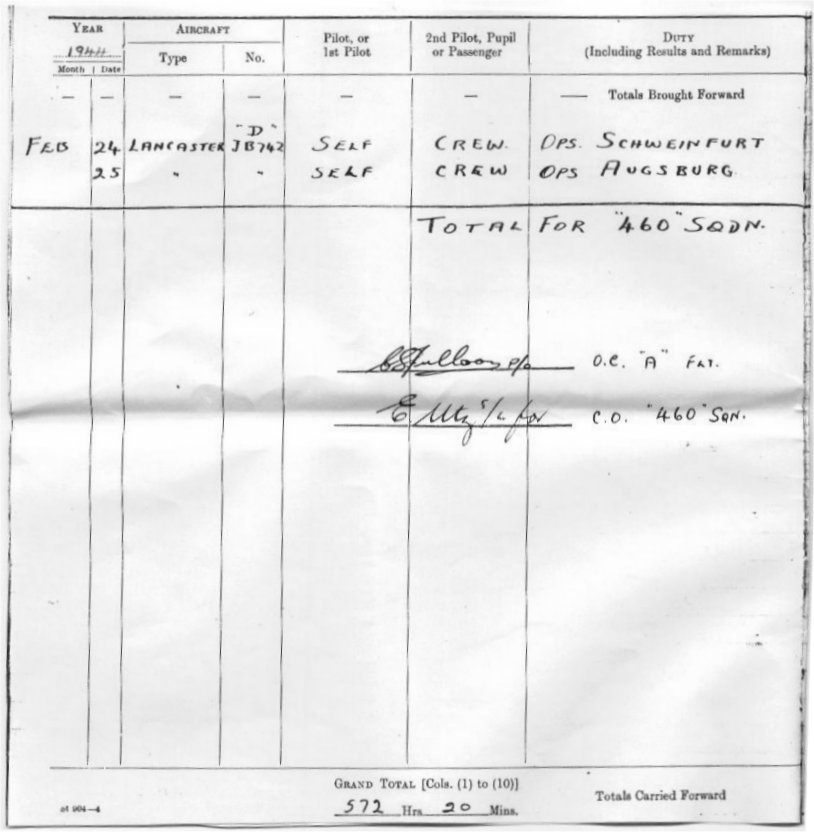 YEAR AIRCRAFT Pilot, or 2nd Pilot, Pupil DUTY
1944 Type No. 1st Pilot or Passenger (Including Results and Remarks)
Month Date
— — — — — — — Totals Brought Forward
"D"
FEB 24 LANCASTER JB742 SELF CREW. OPS. SCHWEINFURT
25 " " SELF CREW OPS AUGSBURG.
TOTAL FOR "460" SQDN.
O.C. "A" FLT.
E Utz S/L for C.O. "460" SQN.
GRAND TOTAL [Cols. (1) to (10)]
572 Hrs 20 Mins. Totals Carried Forward